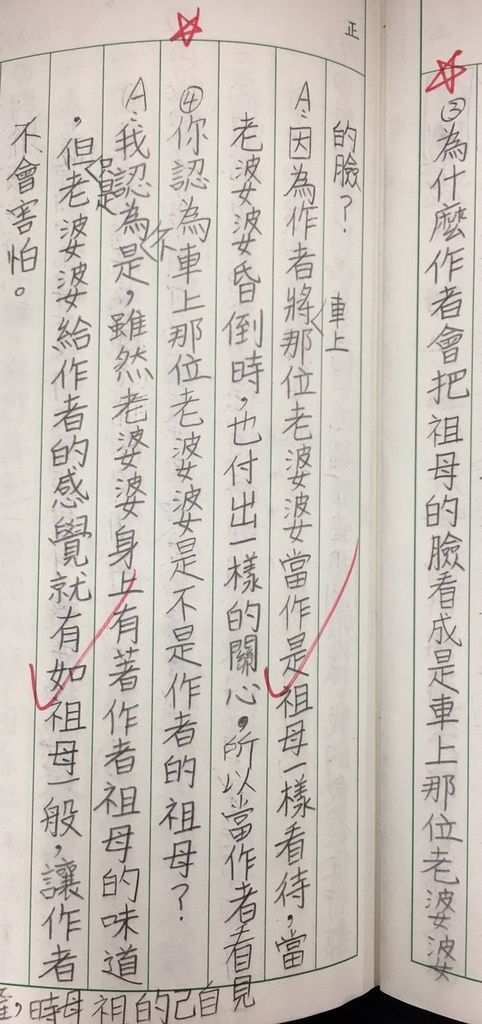 正
③為什麼作者會把祖母的臉看成是車上那位老婆婆
的臉？
A：因為作者將車上那位老婆婆當作是祖母一樣看待，當
老婆婆昏倒時，也付出一樣的關心，所以當作者看見
自己的祖母時，
④你認為車上那位老婆婆是不是作者的祖母？
A：我認為不是，雖然老婆婆身上有著作者祖母的味道
，但只是老婆婆給作者的感覺就有如祖母一般，讓作者
不會害怕。